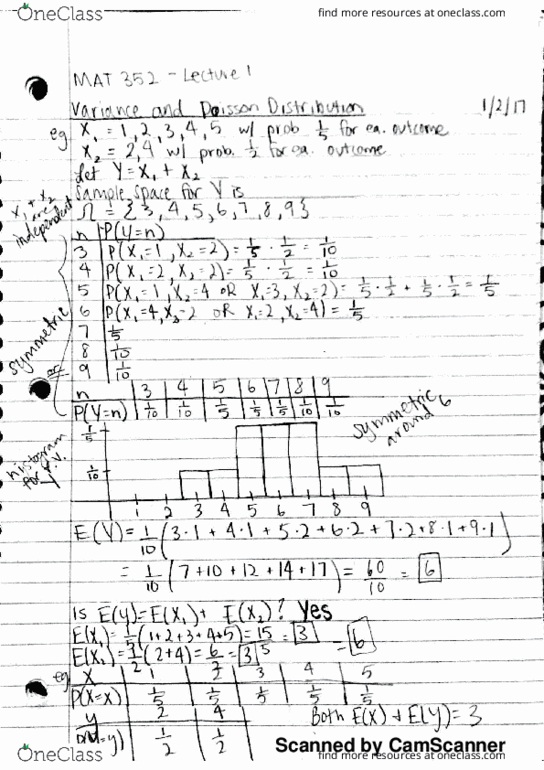 OneClass find more resources at oneclass.com
MAT 352 - Lecture 1
Variance and Poisson Distribution 1/2/17
eg X₁ = 1, 2, 3, 4, 5 w/ prob. 1/5 for ea. outcome
X₂ = 2, 4 w/ prob. 1/2 for ea. outcome
Let Y = X₁ + X₂
Sample space for Y is
X₁ + X₂ are independent
Ω = {3, 4, 5, 6, 7, 8, 9}
n P(Y=n)
3 P(X₁=1, X₂=2) = 1/5 · 1/2 = 1/10
4 P(X₁=2, X₂=2) = 1/5 · 1/2 = 1/10
5 P(X₁=1, X₂=4 OR X₁=3, X₂=2) = 1/5 · 1/2 + 1/5 · 1/2 = 1/5
6 P(X₁=4, X₂=2 OR X₁=2, X₂=4) = 1/5
7 1/5
8 1/10
9 1/10
symmetric
n 3 4 5 6 7 8 9
P(Y=n) 1/10 1/10 1/5 1/5 1/5 1/10 1/10
histogram for r.v. Y
1/5
1/10
symmetric around 6
1 2 3 4 5 6 7 8 9
E(Y) = 1/10 (3·1 + 4·1 + 5·2 + 6·2 + 7·2 + 8·1 + 9·1)
= 1/10 (7 + 10 + 12 + 14 + 17) = 60/10 = 6
Is E(Y) = E(X₁) + E(X₂)? Yes
E(X₁) = 1/5 (1+2+3+4+5) = 15/5 = 3
E(X₂) = 1/2 (2+4) = 6/2 = 3 = 6
eg X 1 2 3 4 5
P(X=x) 1/5 1/5 1/5 1/5 1/5
y 2 4 Both E(X) + E(Y) = 3
1/2 1/2
Scanned by CamScanner
OneClass find more resources at oneclass.com